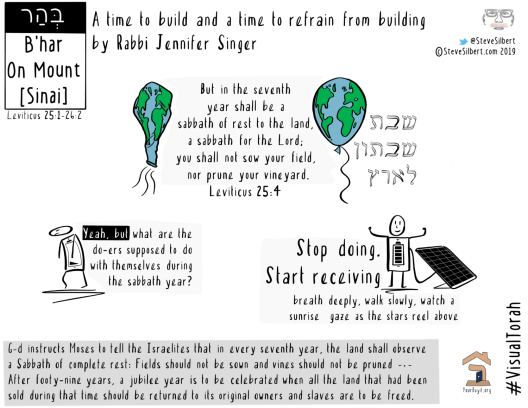 בְּהַר
B'har
On Mount
[Sinai]
Leviticus 25:1-26:2
A time to build and a time to refrain from building
by Rabbi Jennifer Singer
@SteveSilbert
©SteveSilbert.com 2019
But in the seventh
year shall be a
sabbath of rest to the land,
a sabbath for the Lord;
you shall not sow your field,
nor prune your vineyard.
Leviticus 25:4
שבת
שבתון
לארץ
Yeah, but what are the
do-ers supposed to do
with themselves during
the sabbath year?
Stop doing.
Start receiving
breath deeply, walk slowly, watch a
sunrise gaze as the stars reel above
G-d instructs Moses to tell the Israelites that in every seventh year, the land shall observe
a Sabbath of complete rest: Fields should not be sown and vines should not be pruned ---
After fourty-nine years, a jubilee year is to be celebrated when all the land that had been
sold during that time should be returned to its original owners and slaves are to be freed.
#VisualTorah